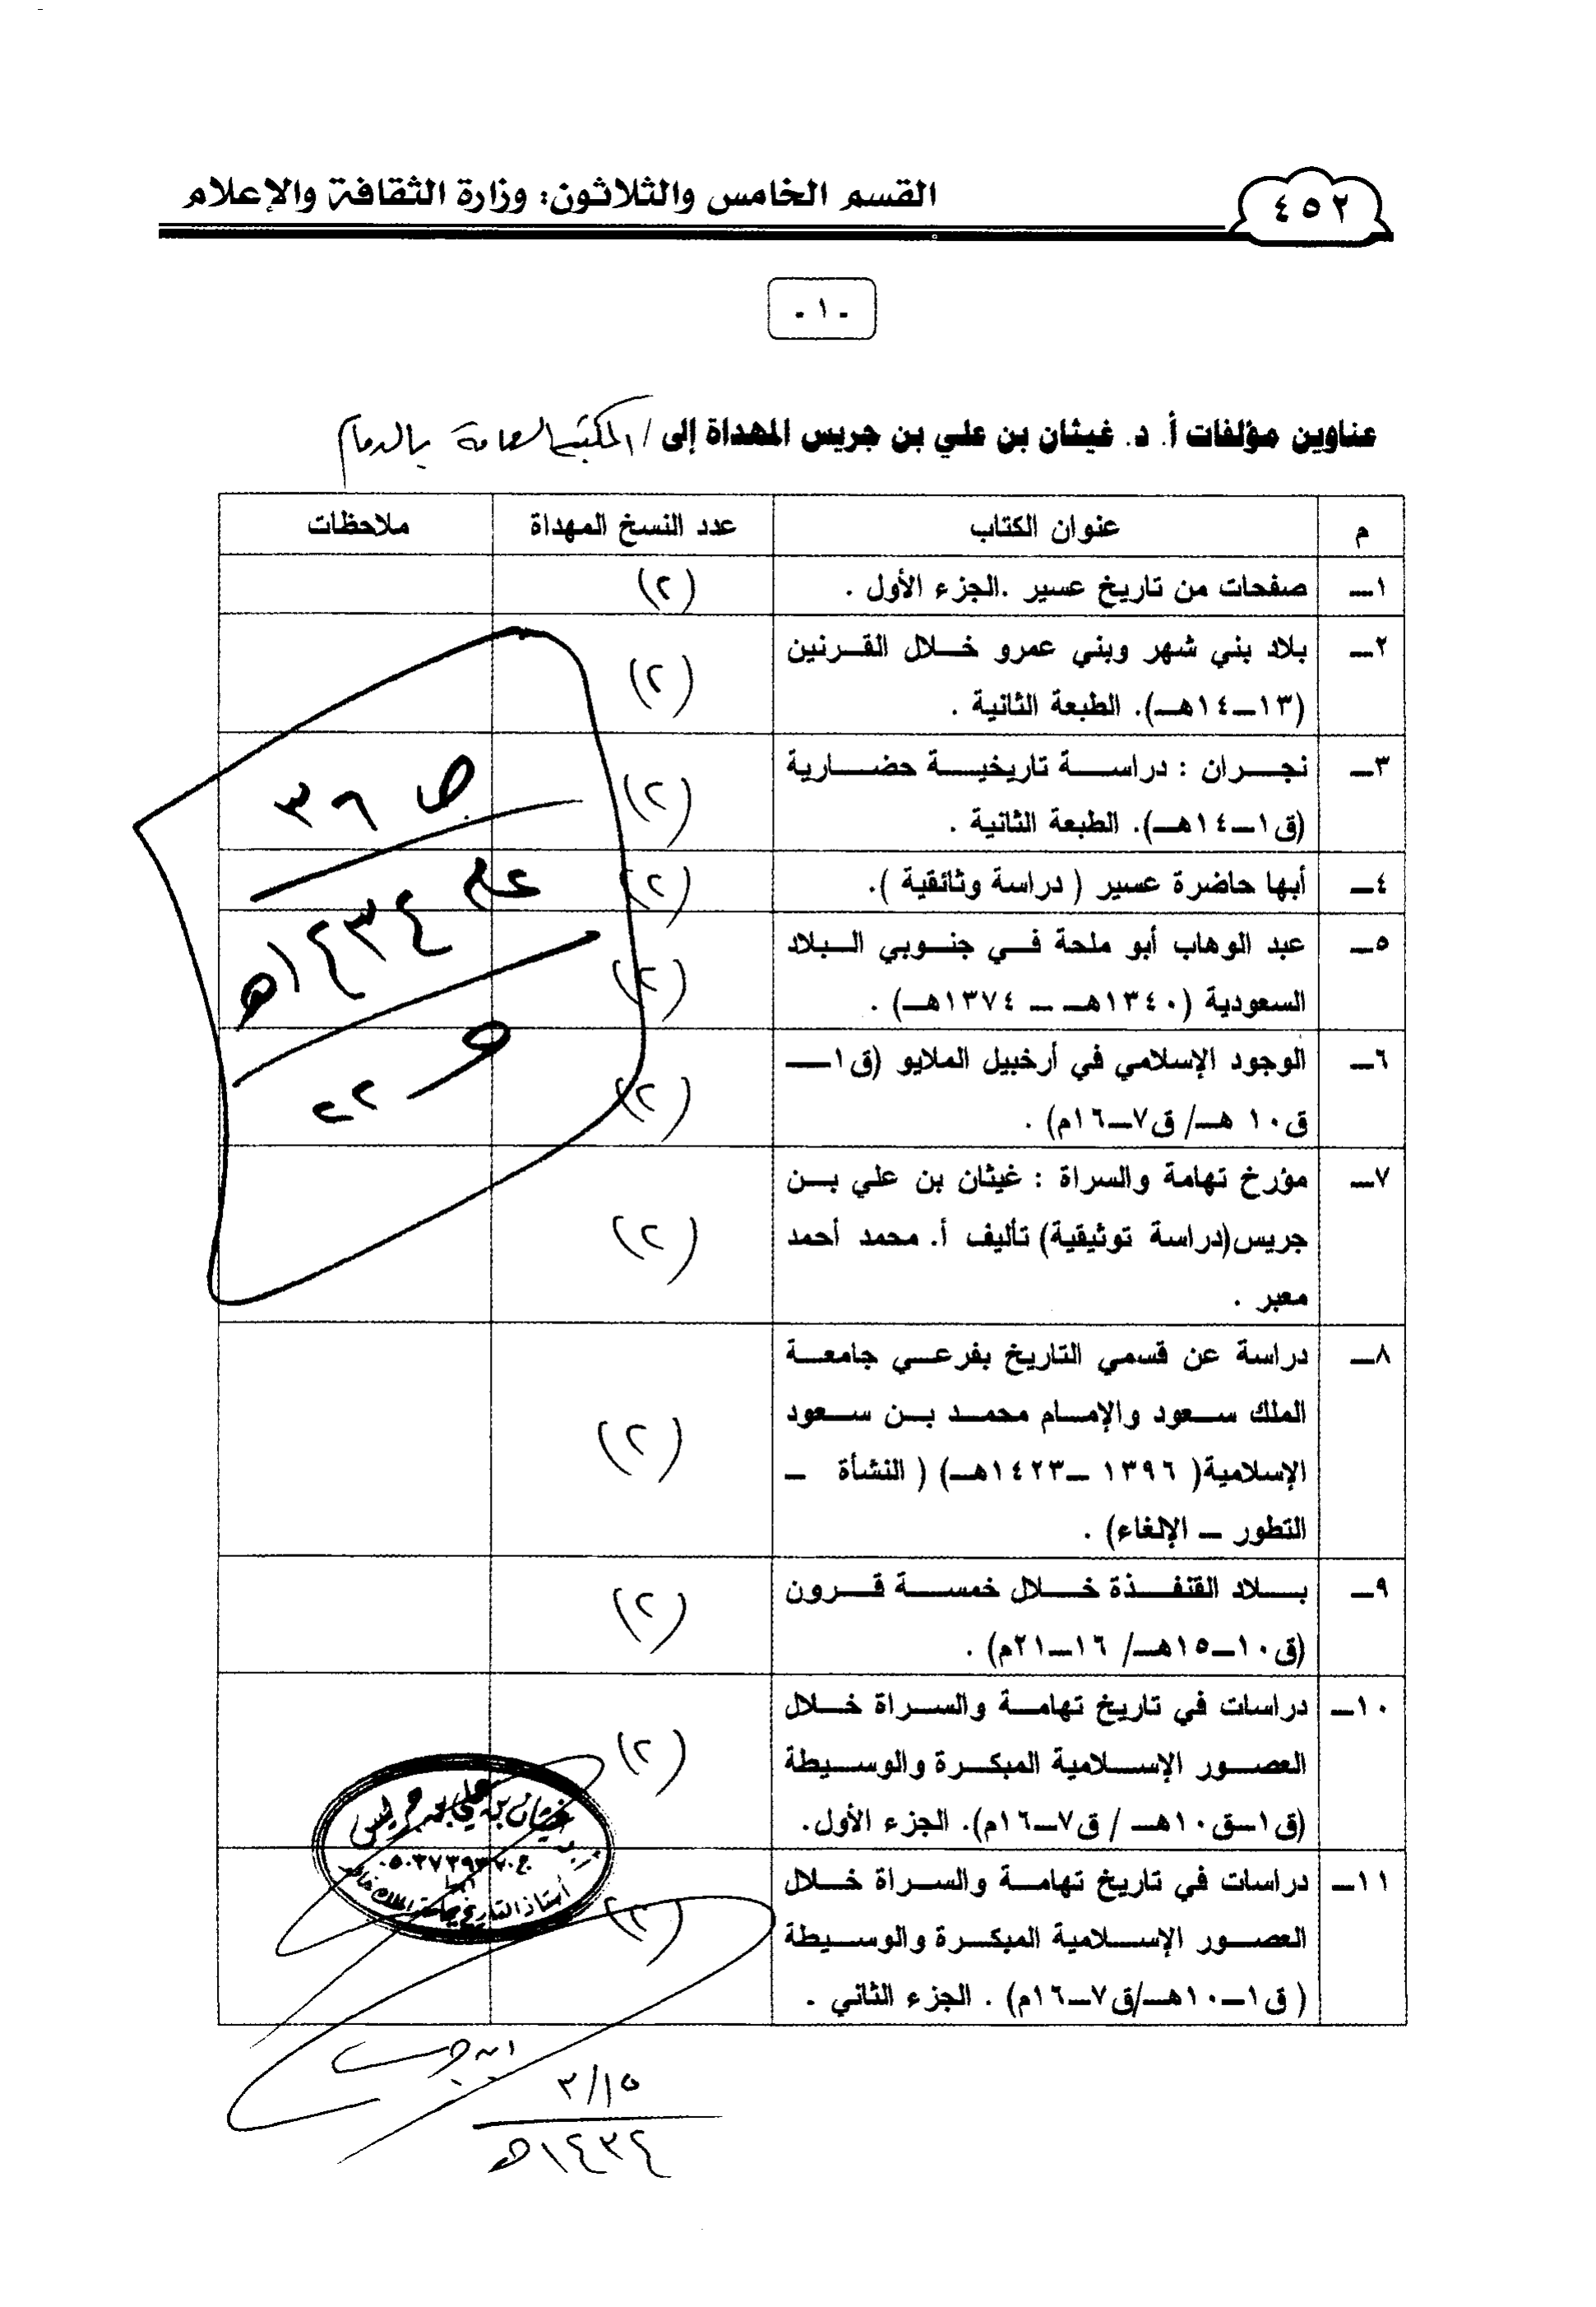 ٤٥٢
القسم الخامس والثلاثون: وزارة الثقافة والإعلام
- ١ -
عناوين مؤلفات أ. د. غيثان بن علي بن جريس المهداة إلى / المكتبة العامة بالدمام
م عنوان الكتاب عدد النسخ المهداة ملاحظات
١ــ صفحات من تاريخ عسير .الجزء الأول . (٢)
٢ــ بلاد بني شهر وبني عمرو خلال القرنين
(١٣ــ١٤هـ). الطبعة الثانية . (٢)
٣ــ نجران : دراسة تاريخية حضارية
(ق١ــ١٤هـ). الطبعة الثانية . (٢)
٤ــ أبها حاضرة عسير ( دراسة وثائقية ). (٢)
٥ــ عبد الوهاب أبو ملحة في جنوبي البلاد
السعودية (١٣٤٠هـ ــ ١٣٧٤هـ) . (٢)
٦ــ الوجود الإسلامي في أرخبيل الملايو (ق١ــ
ق١٠ هـ/ ق٧ــ١٦م) . (٢)
٧ــ مؤرخ تهامة والسراة : غيثان بن علي بن
جريس(دراسة توثيقية) تأليف أ. محمد أحمد
معبر . (٢)
٨ــ دراسة عن قسمي التاريخ بفرعي جامعة
الملك سعود والإمام محمد بن سعود
الإسلامية( ١٣٩٦ ــ١٤٢٣هـ) ( النشأة ــ
التطور ــ الإلغاء) . (٢)
٩ــ بلاد القنفذة خلال خمسة قرون
(ق١٠ــ١٥هـ/ ١٦ــ٢١م) . (٢)
١٠ــ دراسات في تاريخ تهامة والسراة خلال
العصور الإسلامية المبكرة والوسيطة
(ق١ــق١٠هـ / ق٧ــ١٦م). الجزء الأول. (٢)
١١ــ دراسات في تاريخ تهامة والسراة خلال
العصور الإسلامية المبكرة والوسيطة
( ق١ــ١٠هـ/ق٧ــ١٦م) . الجزء الثاني . (٢)
ص ٣٦
عام ١٤٣٤هـ
هـ ٢٢
غيثان بن علي بن جريس
أستاذ التاريخ بجامعة الملك خالد
ابن جريس
٣/١٥
١٤٣٤هـ